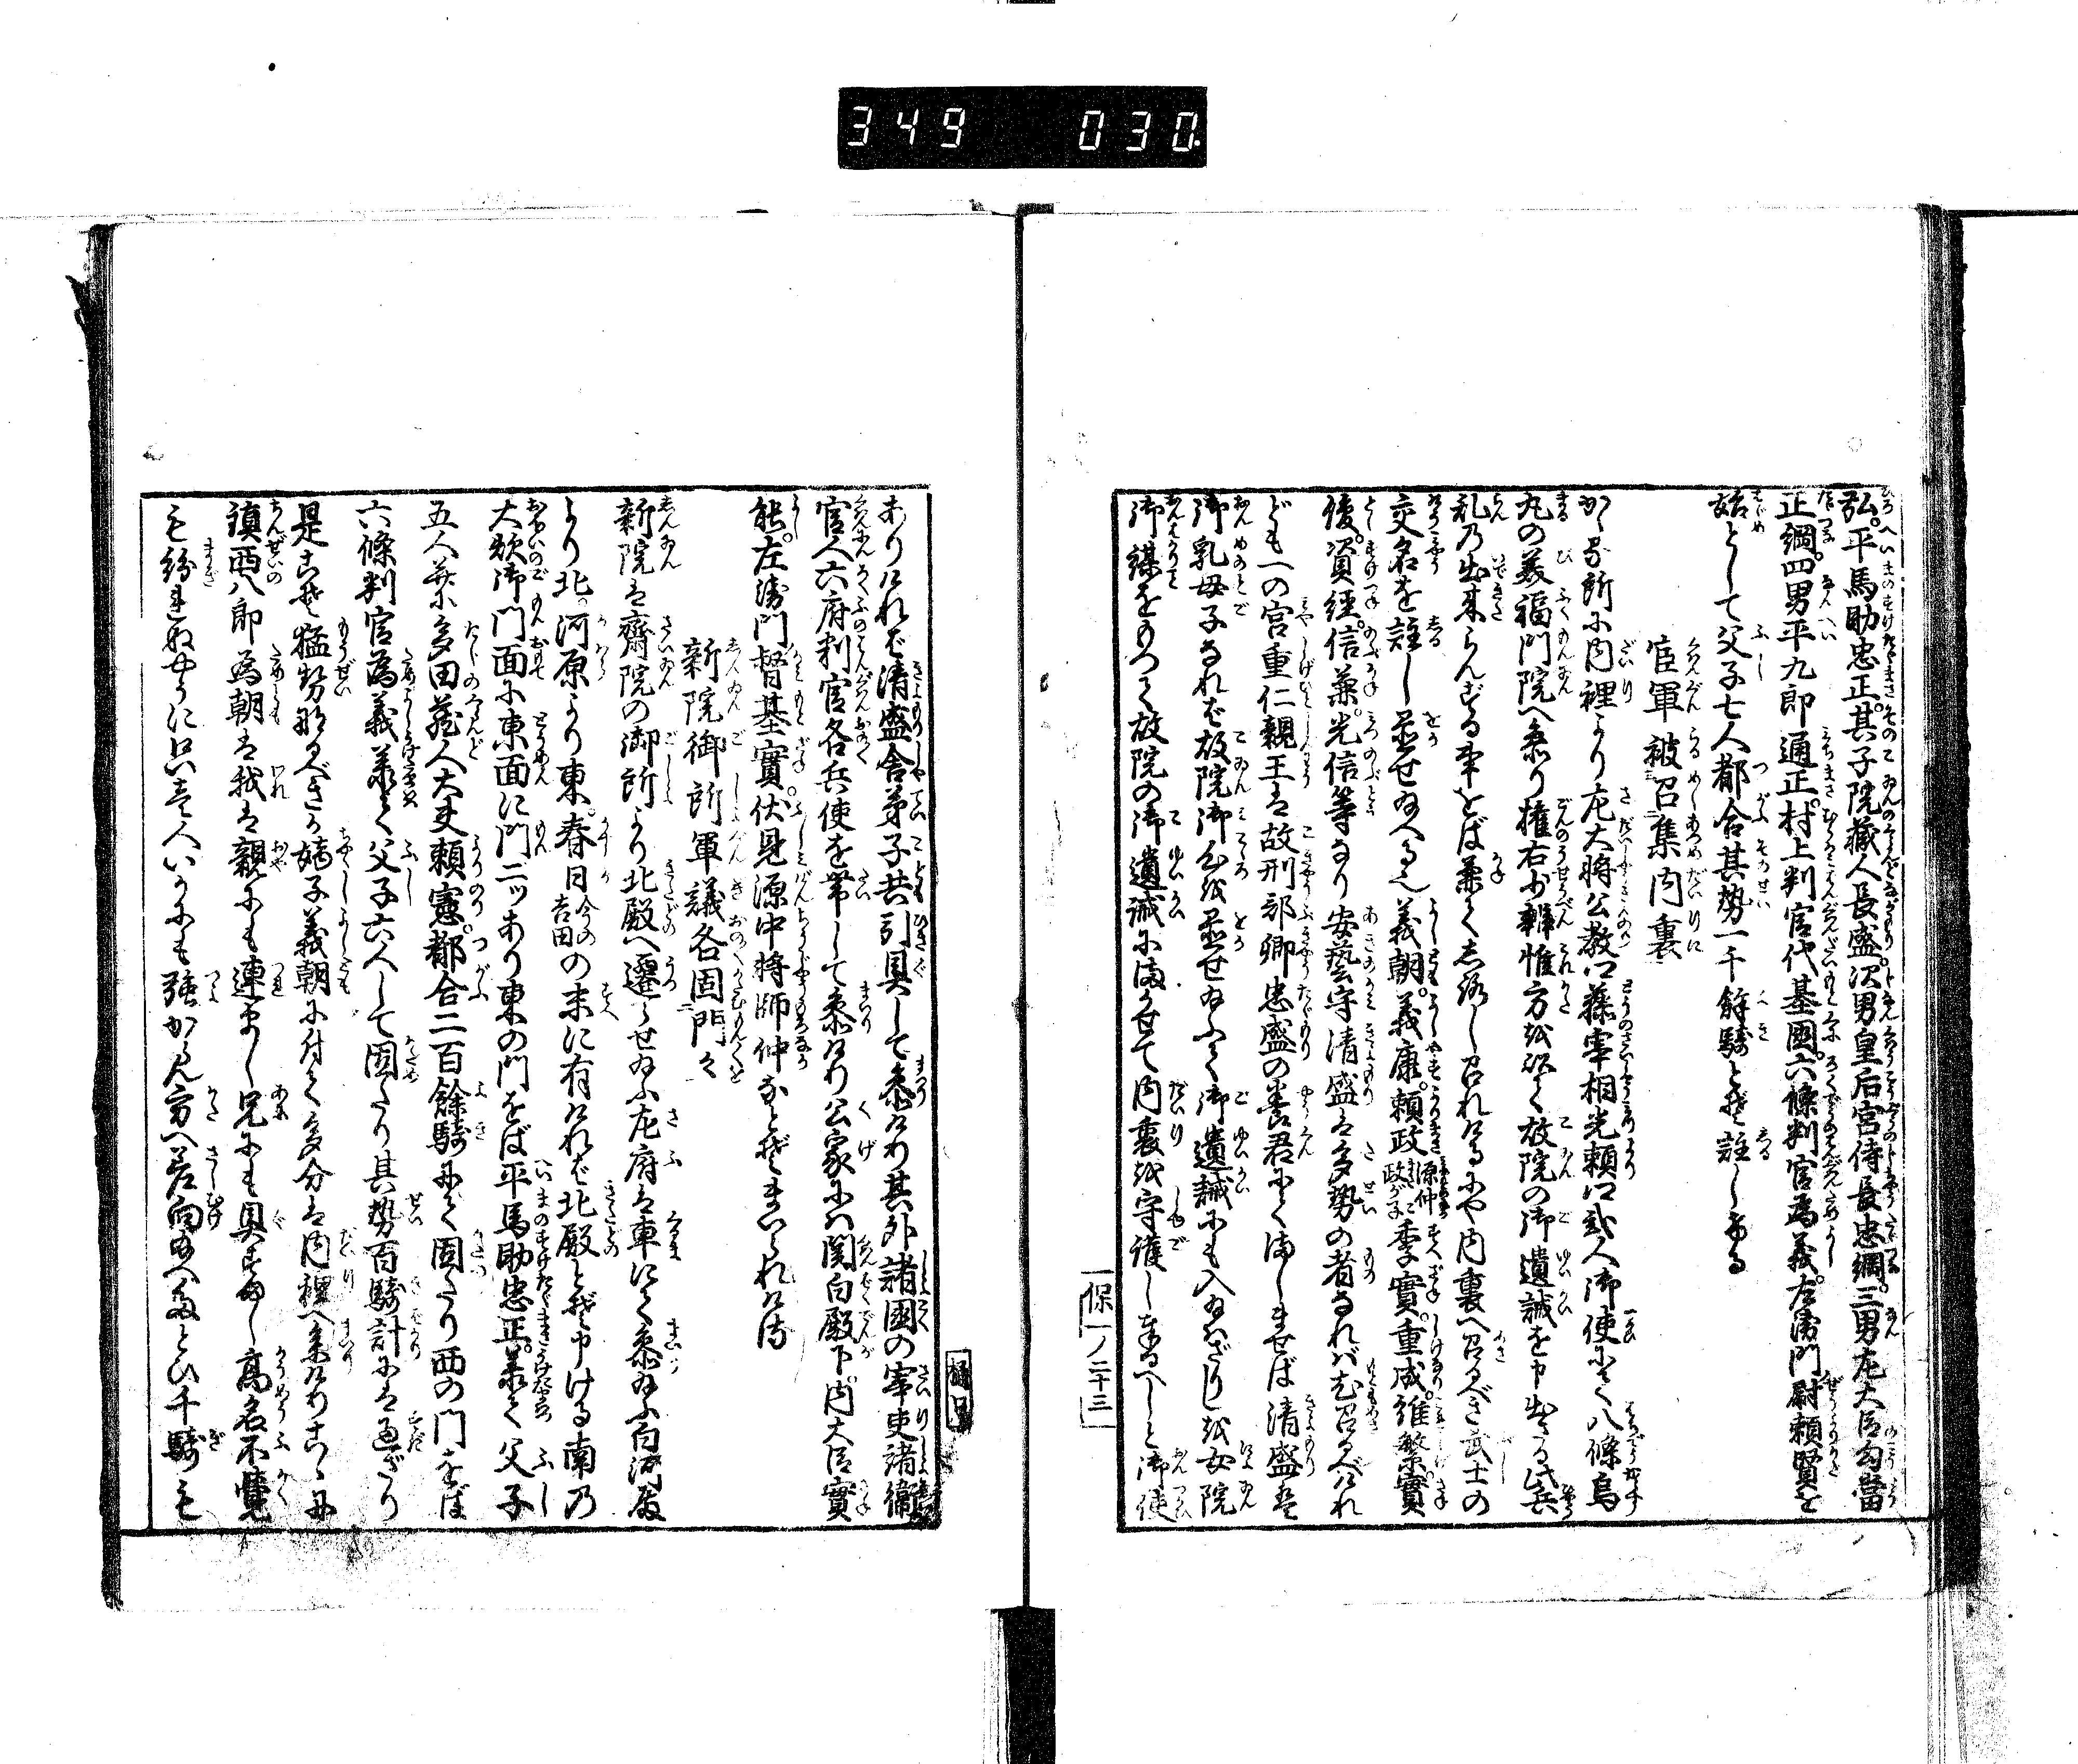 349 030
弘。平馬助忠正。其子院蔵人長盛。次男皇后宮侍長忠綱。三男左大臣勾當
正綱。四男平九郎通正。村上判官代基國。六條判官為義。左衛門尉頼賢を
始として父子七人都合其勢一千餘騎とぞ註しける
官軍被召集内裏
かゝる所に内裡より左大将公教卿藤宰相光頼卿弐人御使にて八條烏
丸の美福門院へ参り権右少辨惟方を以て故院の御遺誡を申出さる此兵
乱の出来らんずる事をば兼てしろしめされけるにや内裏へ召るべき武士の
交名を註し置せ給へる也義朝。義康。頼政。源仲政が子季實。重成。維繁。實
俊。資経。信兼。光信等なり安藝守清盛は多勢の者なれば尤召るべけれ
ども一の宮重仁親王は故刑部卿忠盛の養君にてましませば清盛は
御乳母子なれば故院御心を置せ給ふて御遺誡にも入給はざりしを女院
御謀をめぐらして故院の御遺誡にまかせて内裏を守護し奉るべしと御使
保一ノ二十三
ありければ清盛舎弟子共引具して参けり其外諸國の宰吏諸衛
官人六府判官各兵使を帯して参けり公家には関白殿下。内大臣實
能。左衛門督基實。伏見源中将師仲などぞまいられける
新院御所軍議各固門々
新院は齋院の御所より北殿へ遷らせ給ふ左府は車にて参給ふ白河殿
より北。河原より東。春日今の吉田の末に有ければ北殿とぞ申ける南の
大炊御門面に東面に門二ッあり東の門をば平馬助忠正。承て父子
五人并に多田蔵人大夫頼憲。都合二百餘騎にて固たり西の門をば
六條判官為義承て父子六人して固たり其勢百騎計には過ざり
是こそ猛勢成べきが嫡子義朝に付て多分は内裡へ参けりこゝに
鎮西八郎為朝は我は親にも連まじ兄にも具すまじ高名不覚
も紛れぬやうに只壱人いかにも強からん方へ差向給へたとひ千騎も